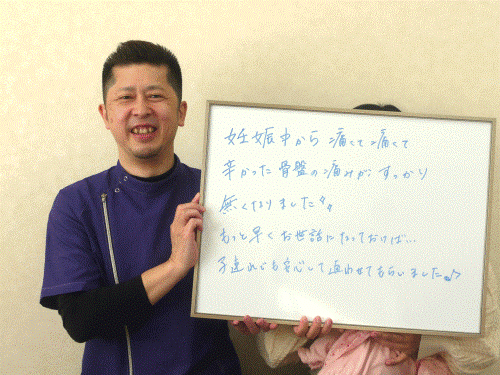 妊娠中から痛くて痛くて
辛かった骨盤の痛みがすっかり
無くなりました!!
もっと早くお世話になっておけば…
子連れでも安心して通わせてもらいました♪